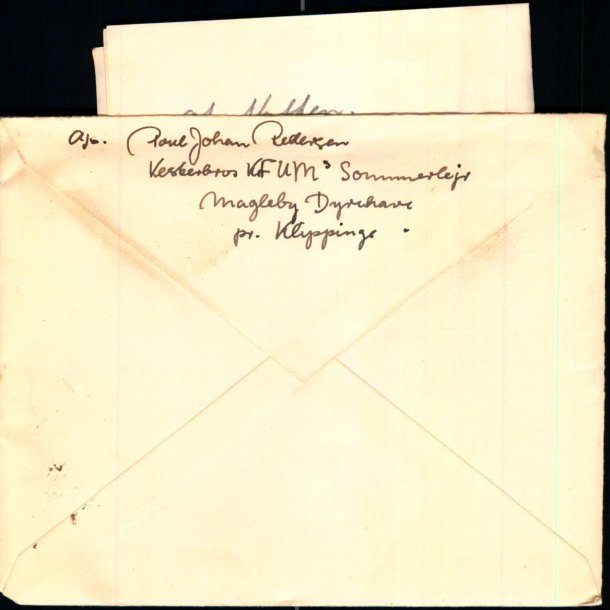 af
Afs. Poul Johan Pedersen
Vesterbros KFUM's Sommerlejr
Magleby Dyrehave
pr. Klippinge.